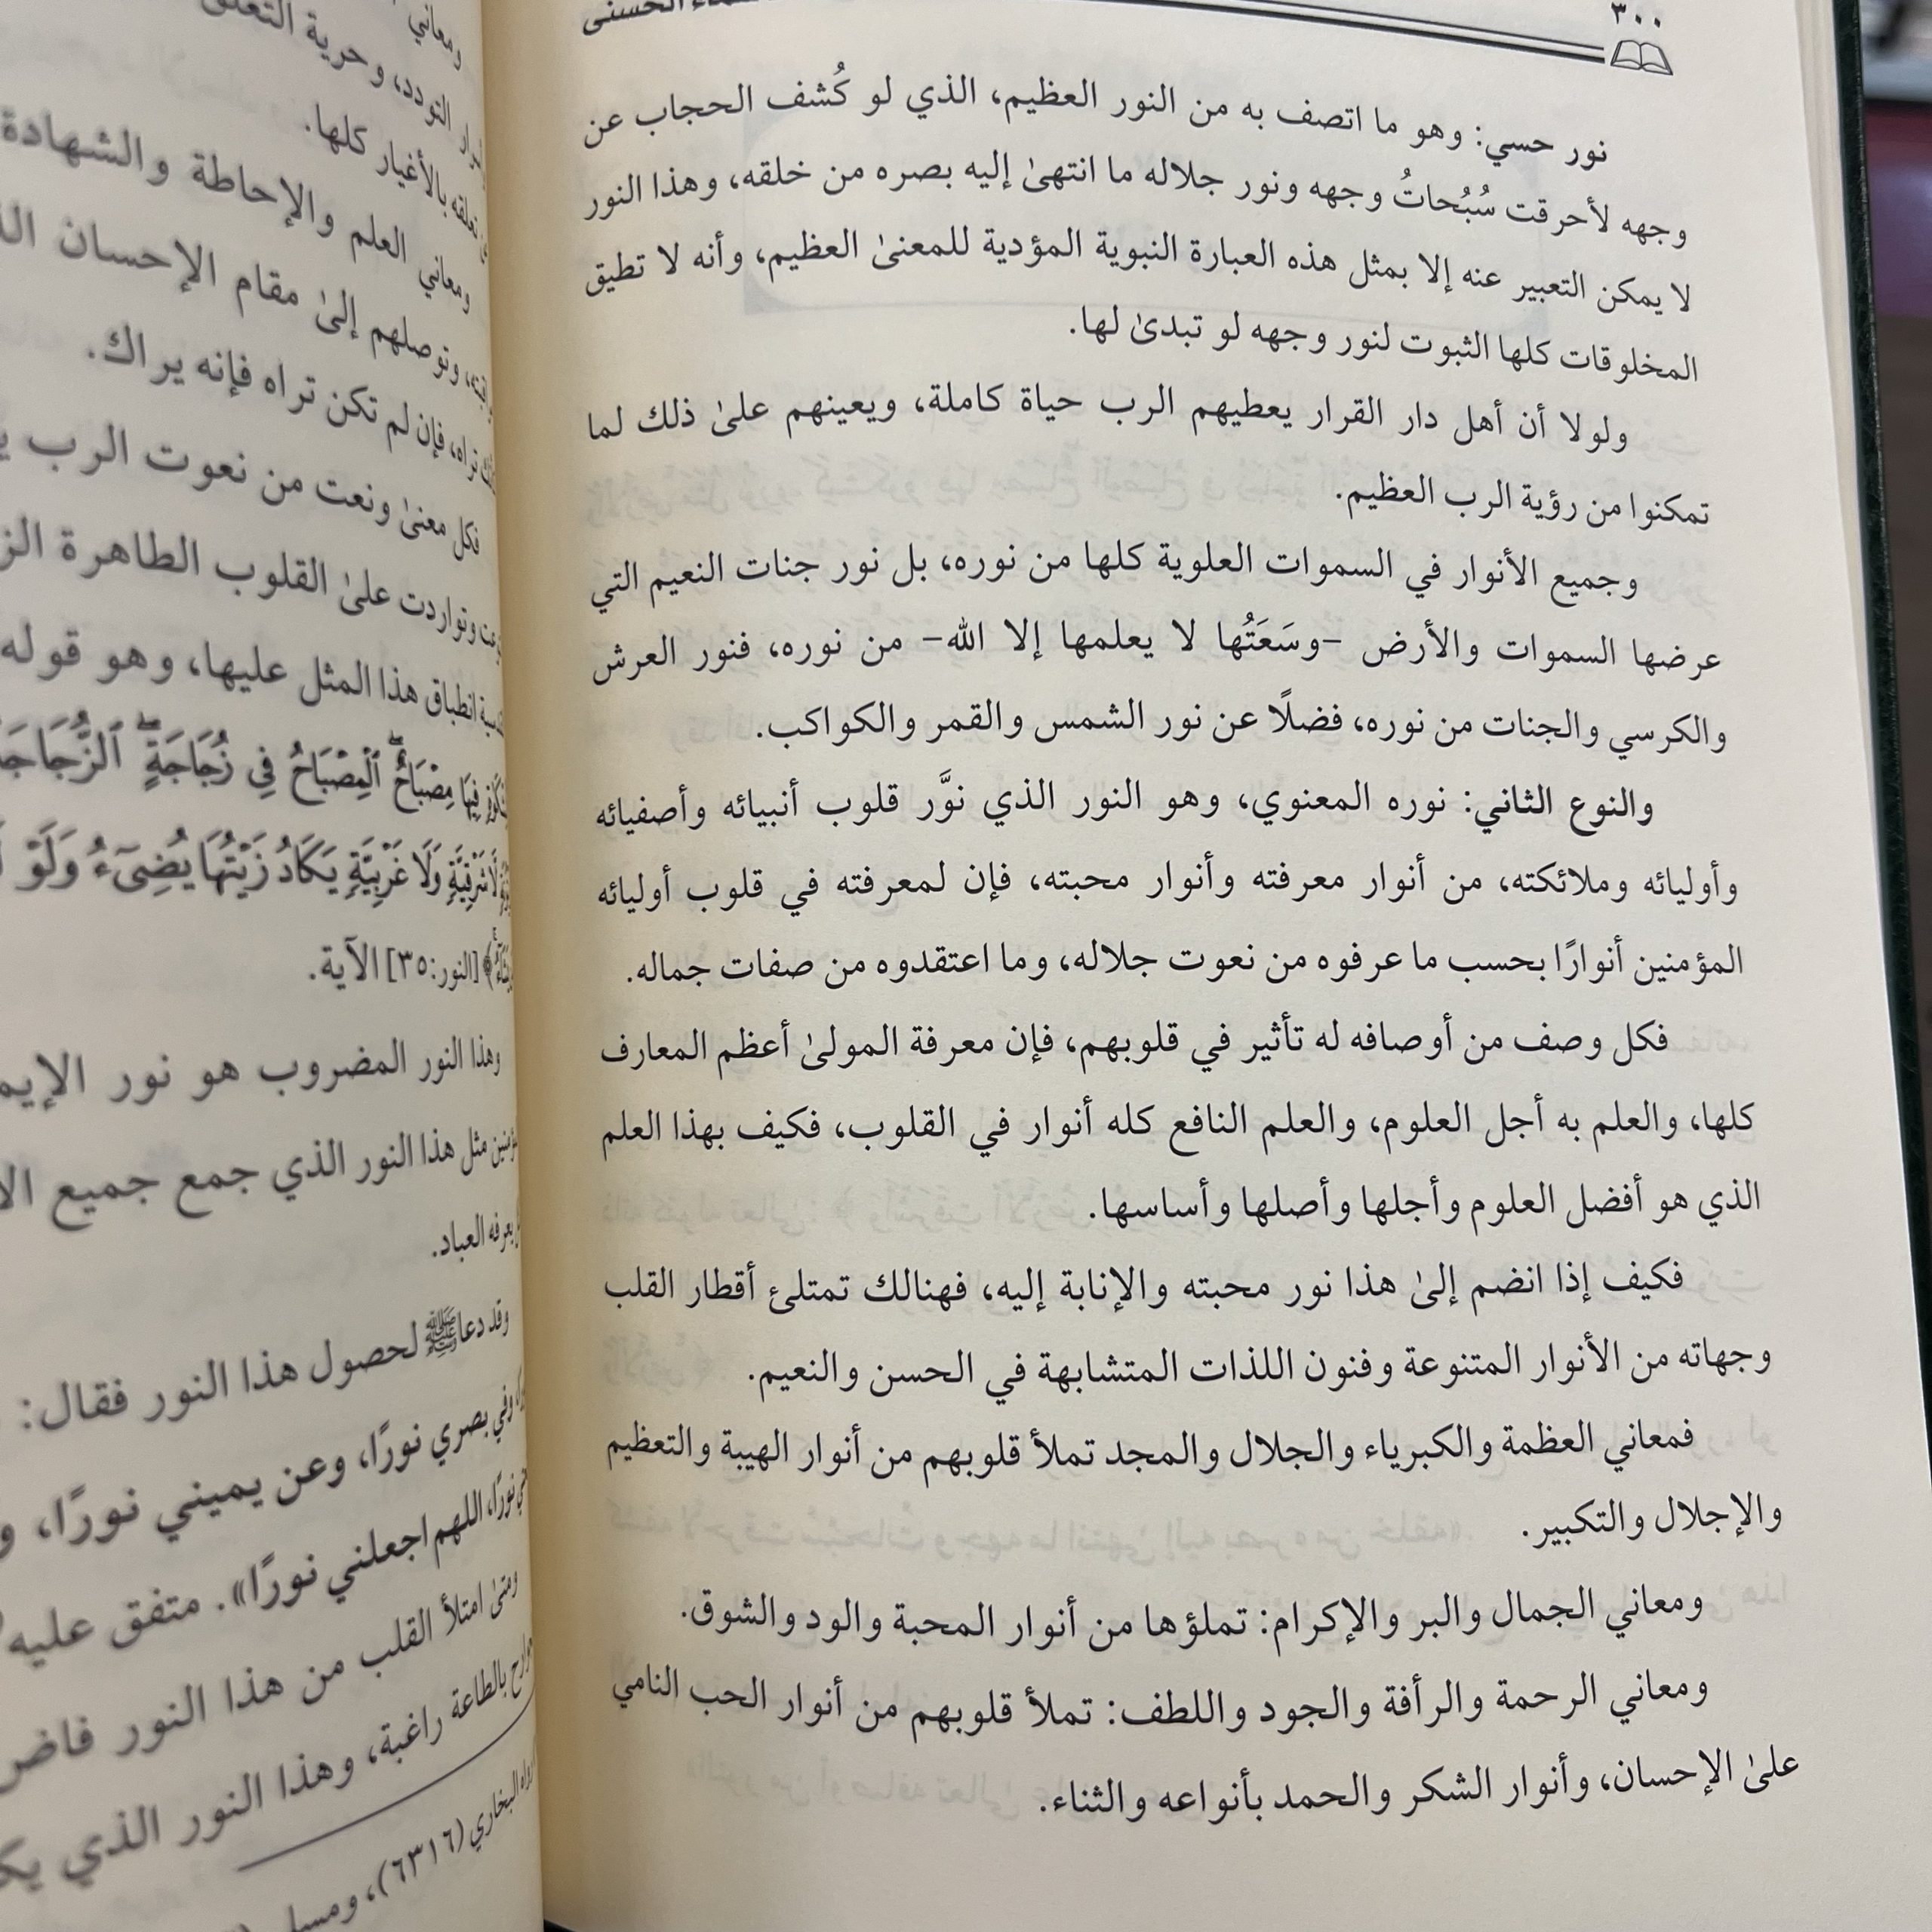 ٣٠٠
الحسنى
نور حسي: وهو ما اتصف به من النور العظيم، الذي لو كُشف الحجاب عن
وجهه لأحرقت سُبُحاتُ وجهه ونور جلاله ما انتهىٰ إليه بصره من خلقه، وهذا النور
لا يمكن التعبير عنه إلا بمثل هذه العبارة النبوية المؤدية للمعنىٰ العظيم، وأنه لا تطيق
المخلوقات كلها الثبوت لنور وجهه لو تبدىٰ لها.
ولولا أن أهل دار القرار يعطيهم الرب حياة كاملة، ويعينهم علىٰ ذلك لما
تمكنوا من رؤية الرب العظيم.
وجميع الأنوار في السموات العلوية كلها من نوره، بل نور جنات النعيم التي
عرضها السموات والأرض –وسَعَتُها لا يعلمها إلا الله– من نوره، فنور العرش
والكرسي والجنات من نوره، فضلًا عن نور الشمس والقمر والكواكب.
والنوع الثاني: نوره المعنوي، وهو النور الذي نوَّر قلوب أنبيائه وأصفيائه
وأوليائه وملائكته، من أنوار معرفته وأنوار محبته، فإن لمعرفته في قلوب أوليائه
المؤمنين أنوارًا بحسب ما عرفوه من نعوت جلاله، وما اعتقدوه من صفات جماله.
فكل وصف من أوصافه له تأثير في قلوبهم، فإن معرفة المولىٰ أعظم المعارف
كلها، والعلم به أجل العلوم، والعلم النافع كله أنوار في القلوب، فكيف بهذا العلم
الذي هو أفضل العلوم وأجلها وأصلها وأساسها.
فكيف إذا انضم إلىٰ هذا نور محبته والإنابة إليه، فهنالك تمتلئ أقطار القلب
وجهاته من الأنوار المتنوعة وفنون اللذات المتشابهة في الحسن والنعيم.
فمعاني العظمة والكبرياء والجلال والمجد تملأ قلوبهم من أنوار الهيبة والتعظيم
والإجلال والتكبير.
ومعاني الجمال والبر والإكرام: تملؤها من أنوار المحبة والود والشوق.
ومعاني الرحمة والرأفة والجود واللطف: تملأ قلوبهم من أنوار الحب النامي
علىٰ الإحسان، وأنوار الشكر والحمد بأنواعه والثناء.
ومعاني
التودد، وحرية التعلق
تعلقه بالأغيار كلها.
ومعاني العلم والإحاطة والشهادة
وتوصلهم إلىٰ مقام الإحسان
تراه، فإن لم تكن تراه فإنه يراك.
فكل معنىٰ ونعت من نعوت الرب
وتواردت علىٰ القلوب الطاهرة
انطباق هذا المثل عليها، وهو قوله
فِيهَا مِصْبَاحٌ ٱلْمِصْبَاحُ فِي زُجَاجَةٍ ٱلزُّجَاجَةُ
لَا شَرْقِيَّةٍ وَلَا غَرْبِيَّةٍ يَكَادُ زَيْتُهَا يُضِىٓءُ وَلَوْ
[النور:٣٥] الآية.
وهذا النور المضروب هو نور
مثل هذا النور الذي جمع جميع
يعرفه العباد.
وقد دعا ﷺ لحصول هذا النور فقال:
وفي بصري نورًا، وعن يميني نورًا،
نورًا، اللهم اجعلني نورًا». متفق عليه
ومتىٰ امتلأ القلب من هذا النور فاض
بالطاعة راغبة، وهذا النور الذي
رواه البخاري (٦٣١٦)، ومسلم